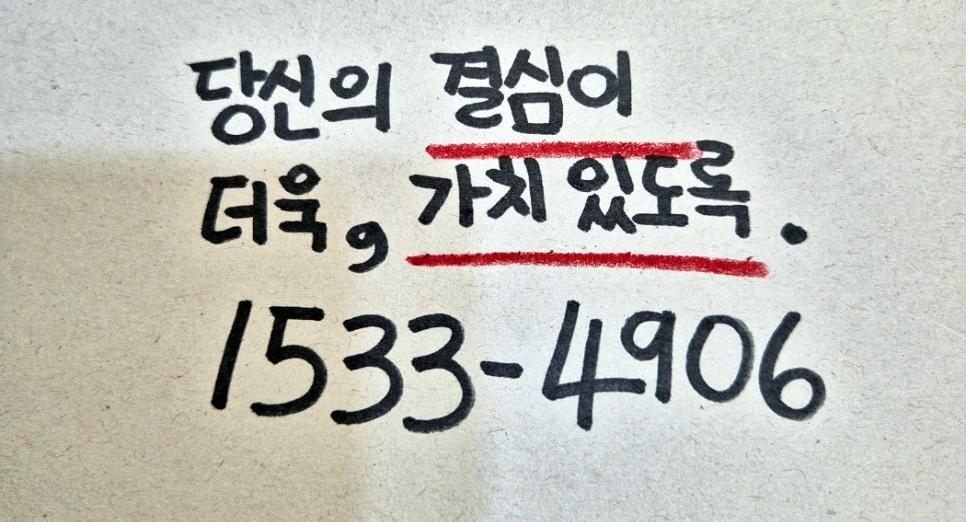 당신의 결심이
더욱, 가치 있도록.
1533-4906